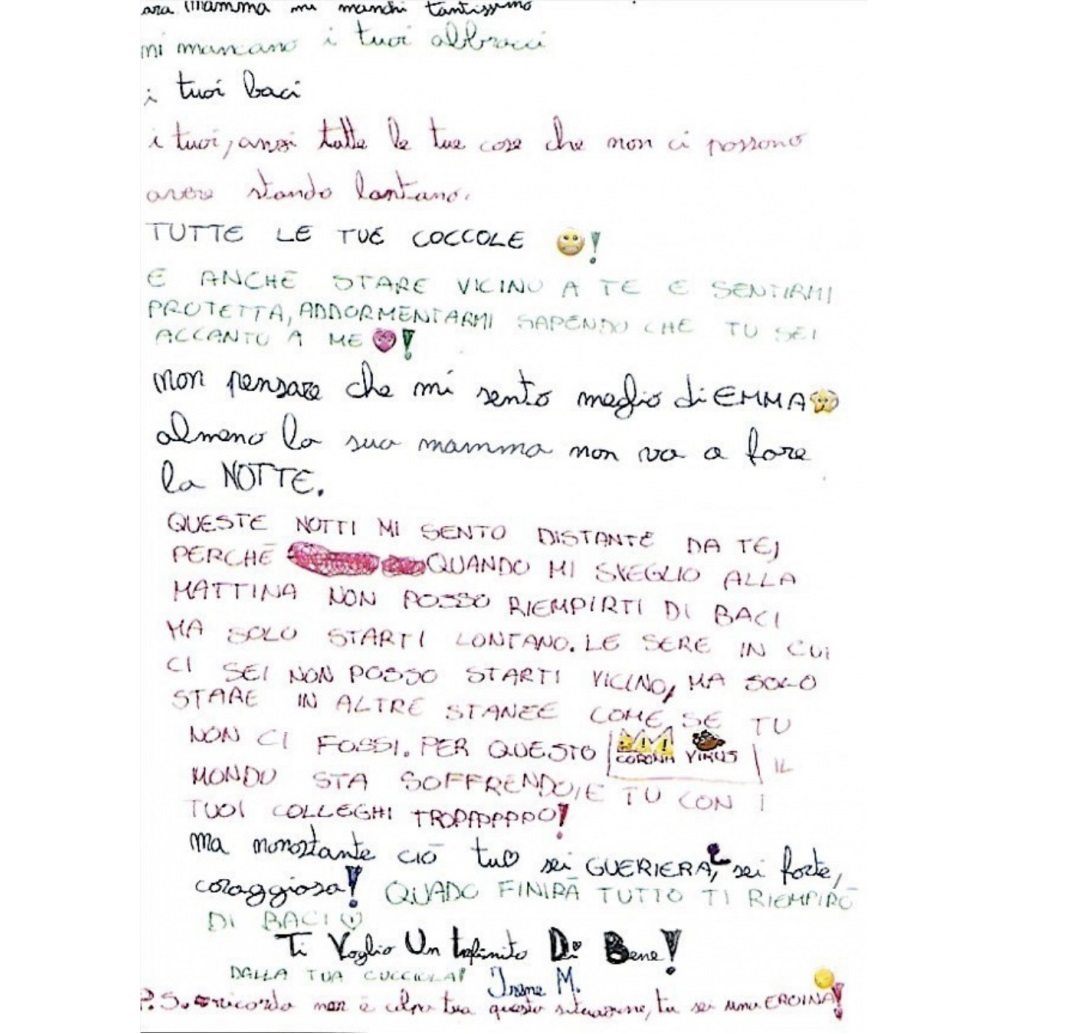 ara Mamma mi manchi tantissimo
mi mancano i tuoi abbracci
i tuoi baci
i tuoi, anzi tutte le tue cose che non ci possono
avere stando lontano.
TUTTE LE TUE COCCOLE !
E ANCHE STARE VICINO A TE E SENTIRMI
PROTETTA, ADDORMENTARMI SAPENDO CHE TU SEI
ACCANTO A ME !
non pensare che mi sento meglio di EMMA
almeno la sua mamma non va a fare
la NOTTE.
QUESTE NOTTI MI SENTO DISTANTE DA TE,
PERCHÉ QUANDO MI SVEGLIO ALLA
MATTINA NON POSSO RIEMPIRTI DI BACI
MA SOLO STARTI LONTANO. LE SERE IN CUI
CI SEI NON POSSO STARTI VICINO, MA SOLO
STARE IN ALTRE STANZE COME SE TU
NON CI FOSSI. PER QUESTO CORONA VIRUS IL
MONDO STA SOFFRENDO, E TU CON I
TUOI COLLEGHI TROPPPPPPO!
Ma nonostante ciò tu sei GUERIERA, sei forte,
coraggiosa! QUADO FINIRÀ TUTTO TI RIEMPIRÒ
DI BACI
Ti Voglio Un Infinito Di Bene!
DALLA TUA CUCCIOLA! Irene M.
P.S. ricorda non è colpa tua questa situazione, tu sei una EROINA!